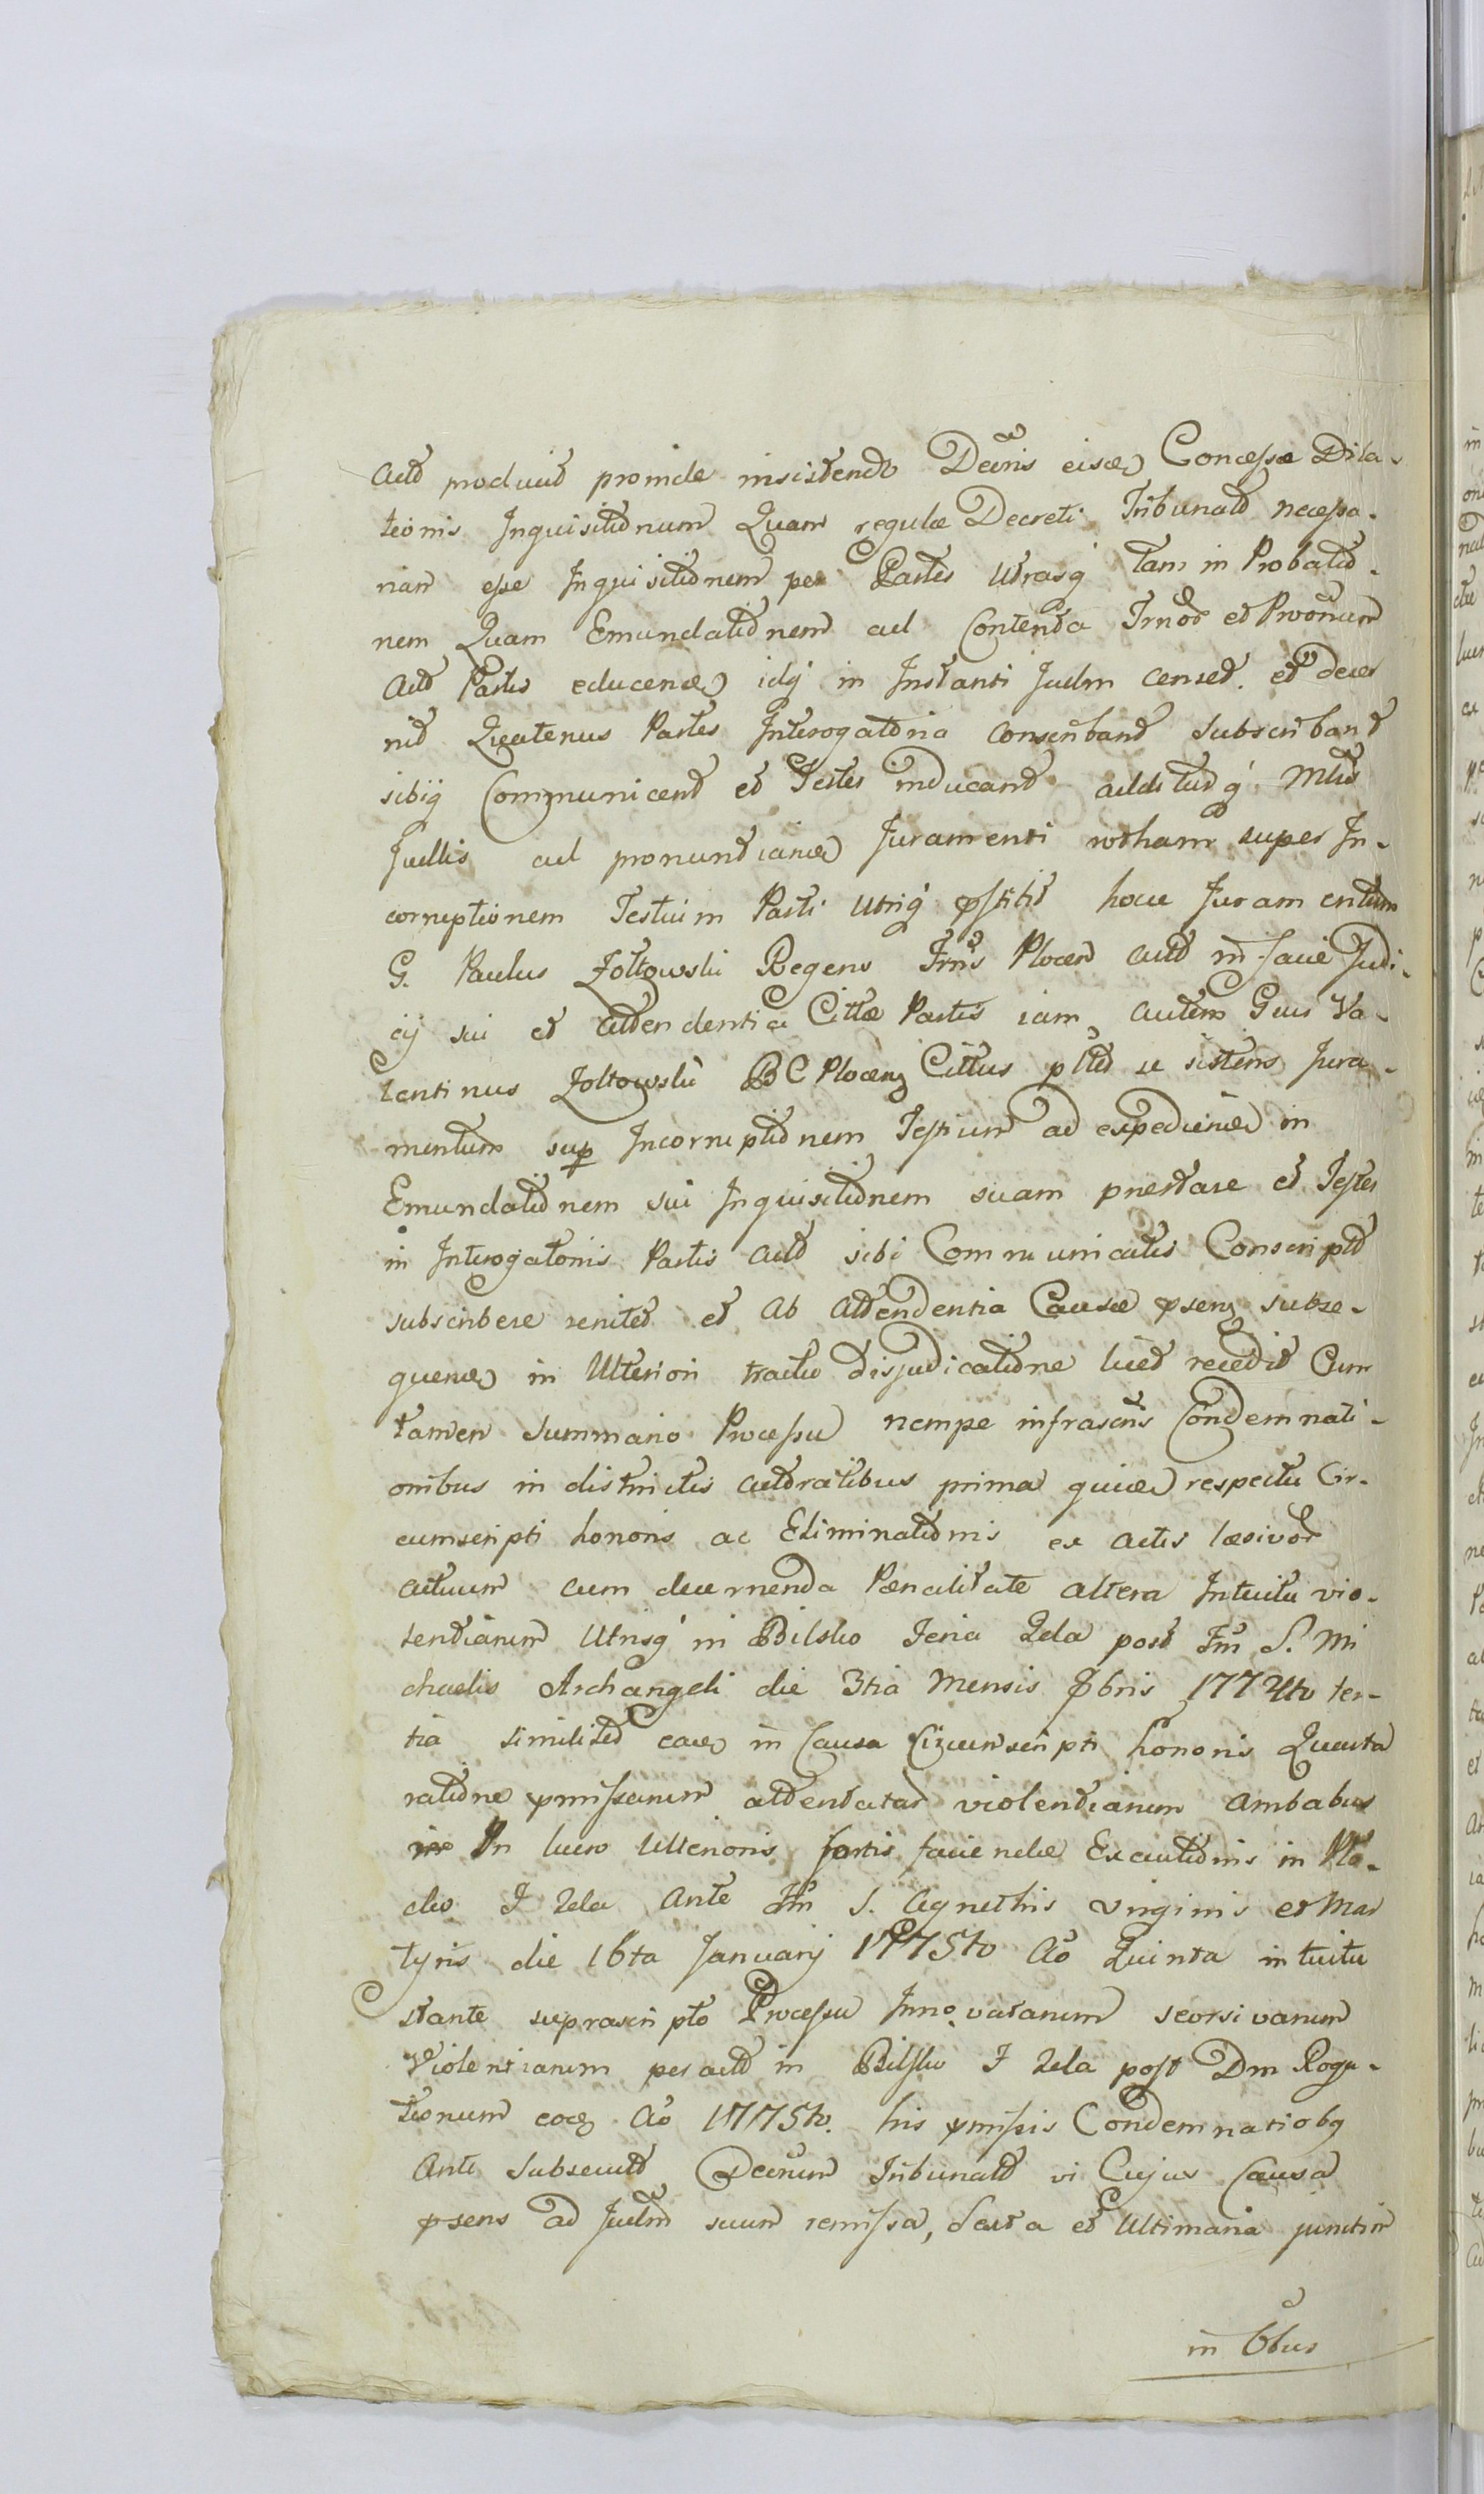 Actd produud proinde insistendo Decris eisd Concessæ Dila-
tionis Inquisitidnum Quam regulæ Decreti Tribunald necessa-
riam esse Inquisitidnem per Partes Utrasq tam in Probatid-
nem Quam Emundatidnem ad Contenta Trnor et Prvonum
Actd Partis educend idq in Instanti Judm censed. et decer
nid Quatenus Partes Interogatoria conscriband subscriband
sibiq Communicend et Testes inducand additurq Mtis
Judlis ad pronuntiand Juramenti rotham super In-
corruptionem Testium Parti Utriq pstitit hocce Juramentum
G. Paulus Zoltowski Regens Trris Plocen actd in facie Judi-
cij sui et attendentia Cittæ Partis iam autem Gsus Va-
lentinus Zoltowski B C Plocens Cittus pltd se sistens Jura-
mentum sup Incorruptidnem Testium ad expediend in
Emundatidnem sui Inquisitidnem suam prestare et Testes
in Interogatoriis Partis actd sibi Communicatis Conscriptd
subscribere renited et ab attendentia Causæ psens subse-
quend in Ulteriori tractu disjudicatidne lued recedit Cum
tamen Summario Processu nempe infrascris Condemnati-
onibus in districtis actdratibus prima quid respectu Cir-
cumscripti honoris ac Eliminatidnis ex actis læsivor
actuum cum decernenda Pænalitate altera Intuitu vio-
lentiarum Utrisq in Bilsko Feria 2da post Fm S. Mi
chaelis Archangeli die 3tia Mensis 8bris 1774to ter-
tia similited eaed in Causa Circumscripti honoris Quarta
ratidne pmissarum attentatar violentiarum ambabus
In lucro Ulterioris fortis faciendæ Executidnis in Plo-
cko F 2da ante Fm S. Agnethis Virginis et Mar
tyris die 16ta Januarij 1775to Ao Quinta intuitu
stante suprascripto Processu Innovatarum seorsivarum
Violentiarum per actd in Bilsko F 2da post Dm Roga-
tionum eoq Ao 1775to. his pmissis Condemnatiobq
Ante Subsecutd Decrum Tribunald vi Cujus Causa
psens ad Judm suum remissa, Sexta et Ultimaria junctim
in bbus